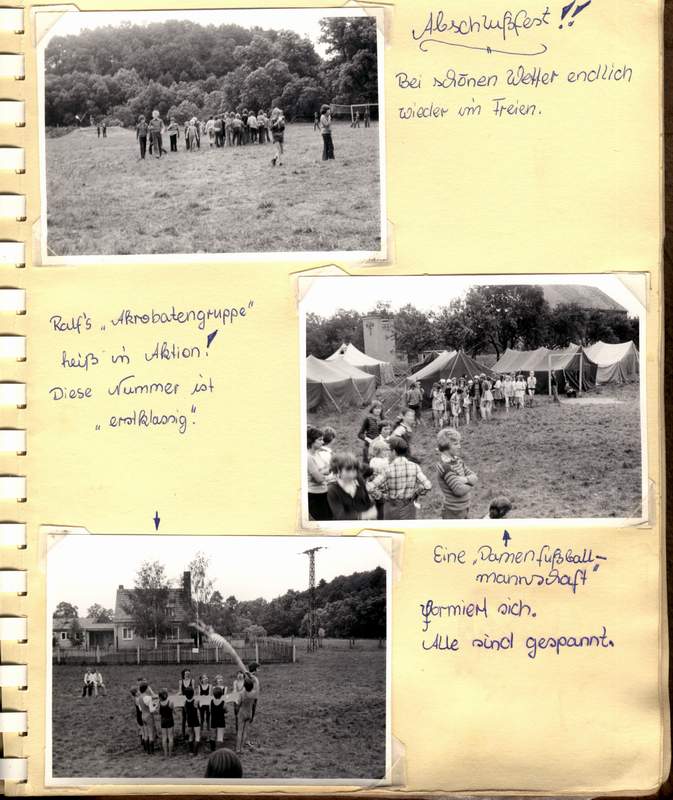 Abschlußfest!!
Bei schönen Wetter endlich
wieder im Freien.
Ralf's „Akrobatengruppe"
heiß in Aktion!
Diese Nummer ist
„erstklassig".
Eine „Damenfußball-
mannschaft"
formiert sich.
Alle sind gespannt.